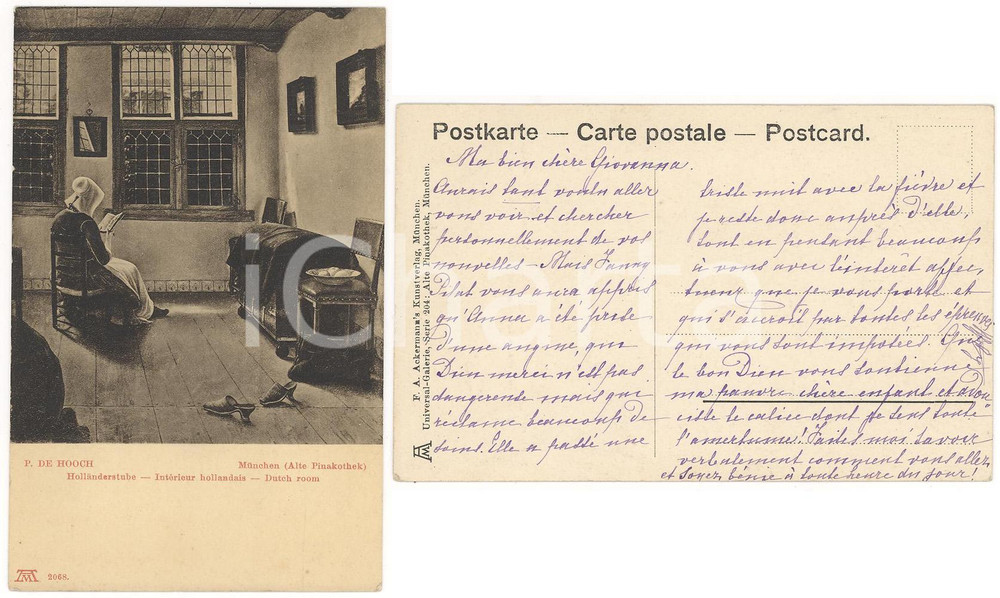 P. DE HOOCH
München (Alte Pinakothek)
Holländerstube — Intérieur hollandais — Dutch room
2068.
Postkarte — Carte postale — Postcard.
F. A. Ackermann's Kunstverlag, München.
Universal-Galerie, Serie 204: Alte Pinakothek, München.
Ma bien chère Giovanna.
Aurais tant voulu aller
vous voir et chercher
personnellement de vos
nouvelles – Mais Fanny
vous aura appris
qu'Anna a été prise
d'une angine, qui
Dieu merci n'est pas
dangereuse mais qui
réclame beaucoup de
soins. Elle a passé une
triste nuit avec la fièvre et
je reste donc auprès d'elle,
tout en pensant beaucoup
à vous avec l'intérêt affec
tueux que je vous porte et
qui s'accroit par toutes les épreuves
qui vous sont imposées. Que
le bon Dieu vous soutienne
ma pauvre chère enfant et adou
cisse le calice dont je sens toute
l'amertume! Faites moi savoir
verbalement comment vous allez
et soyez bénie à toute heure du jour!
iCharta